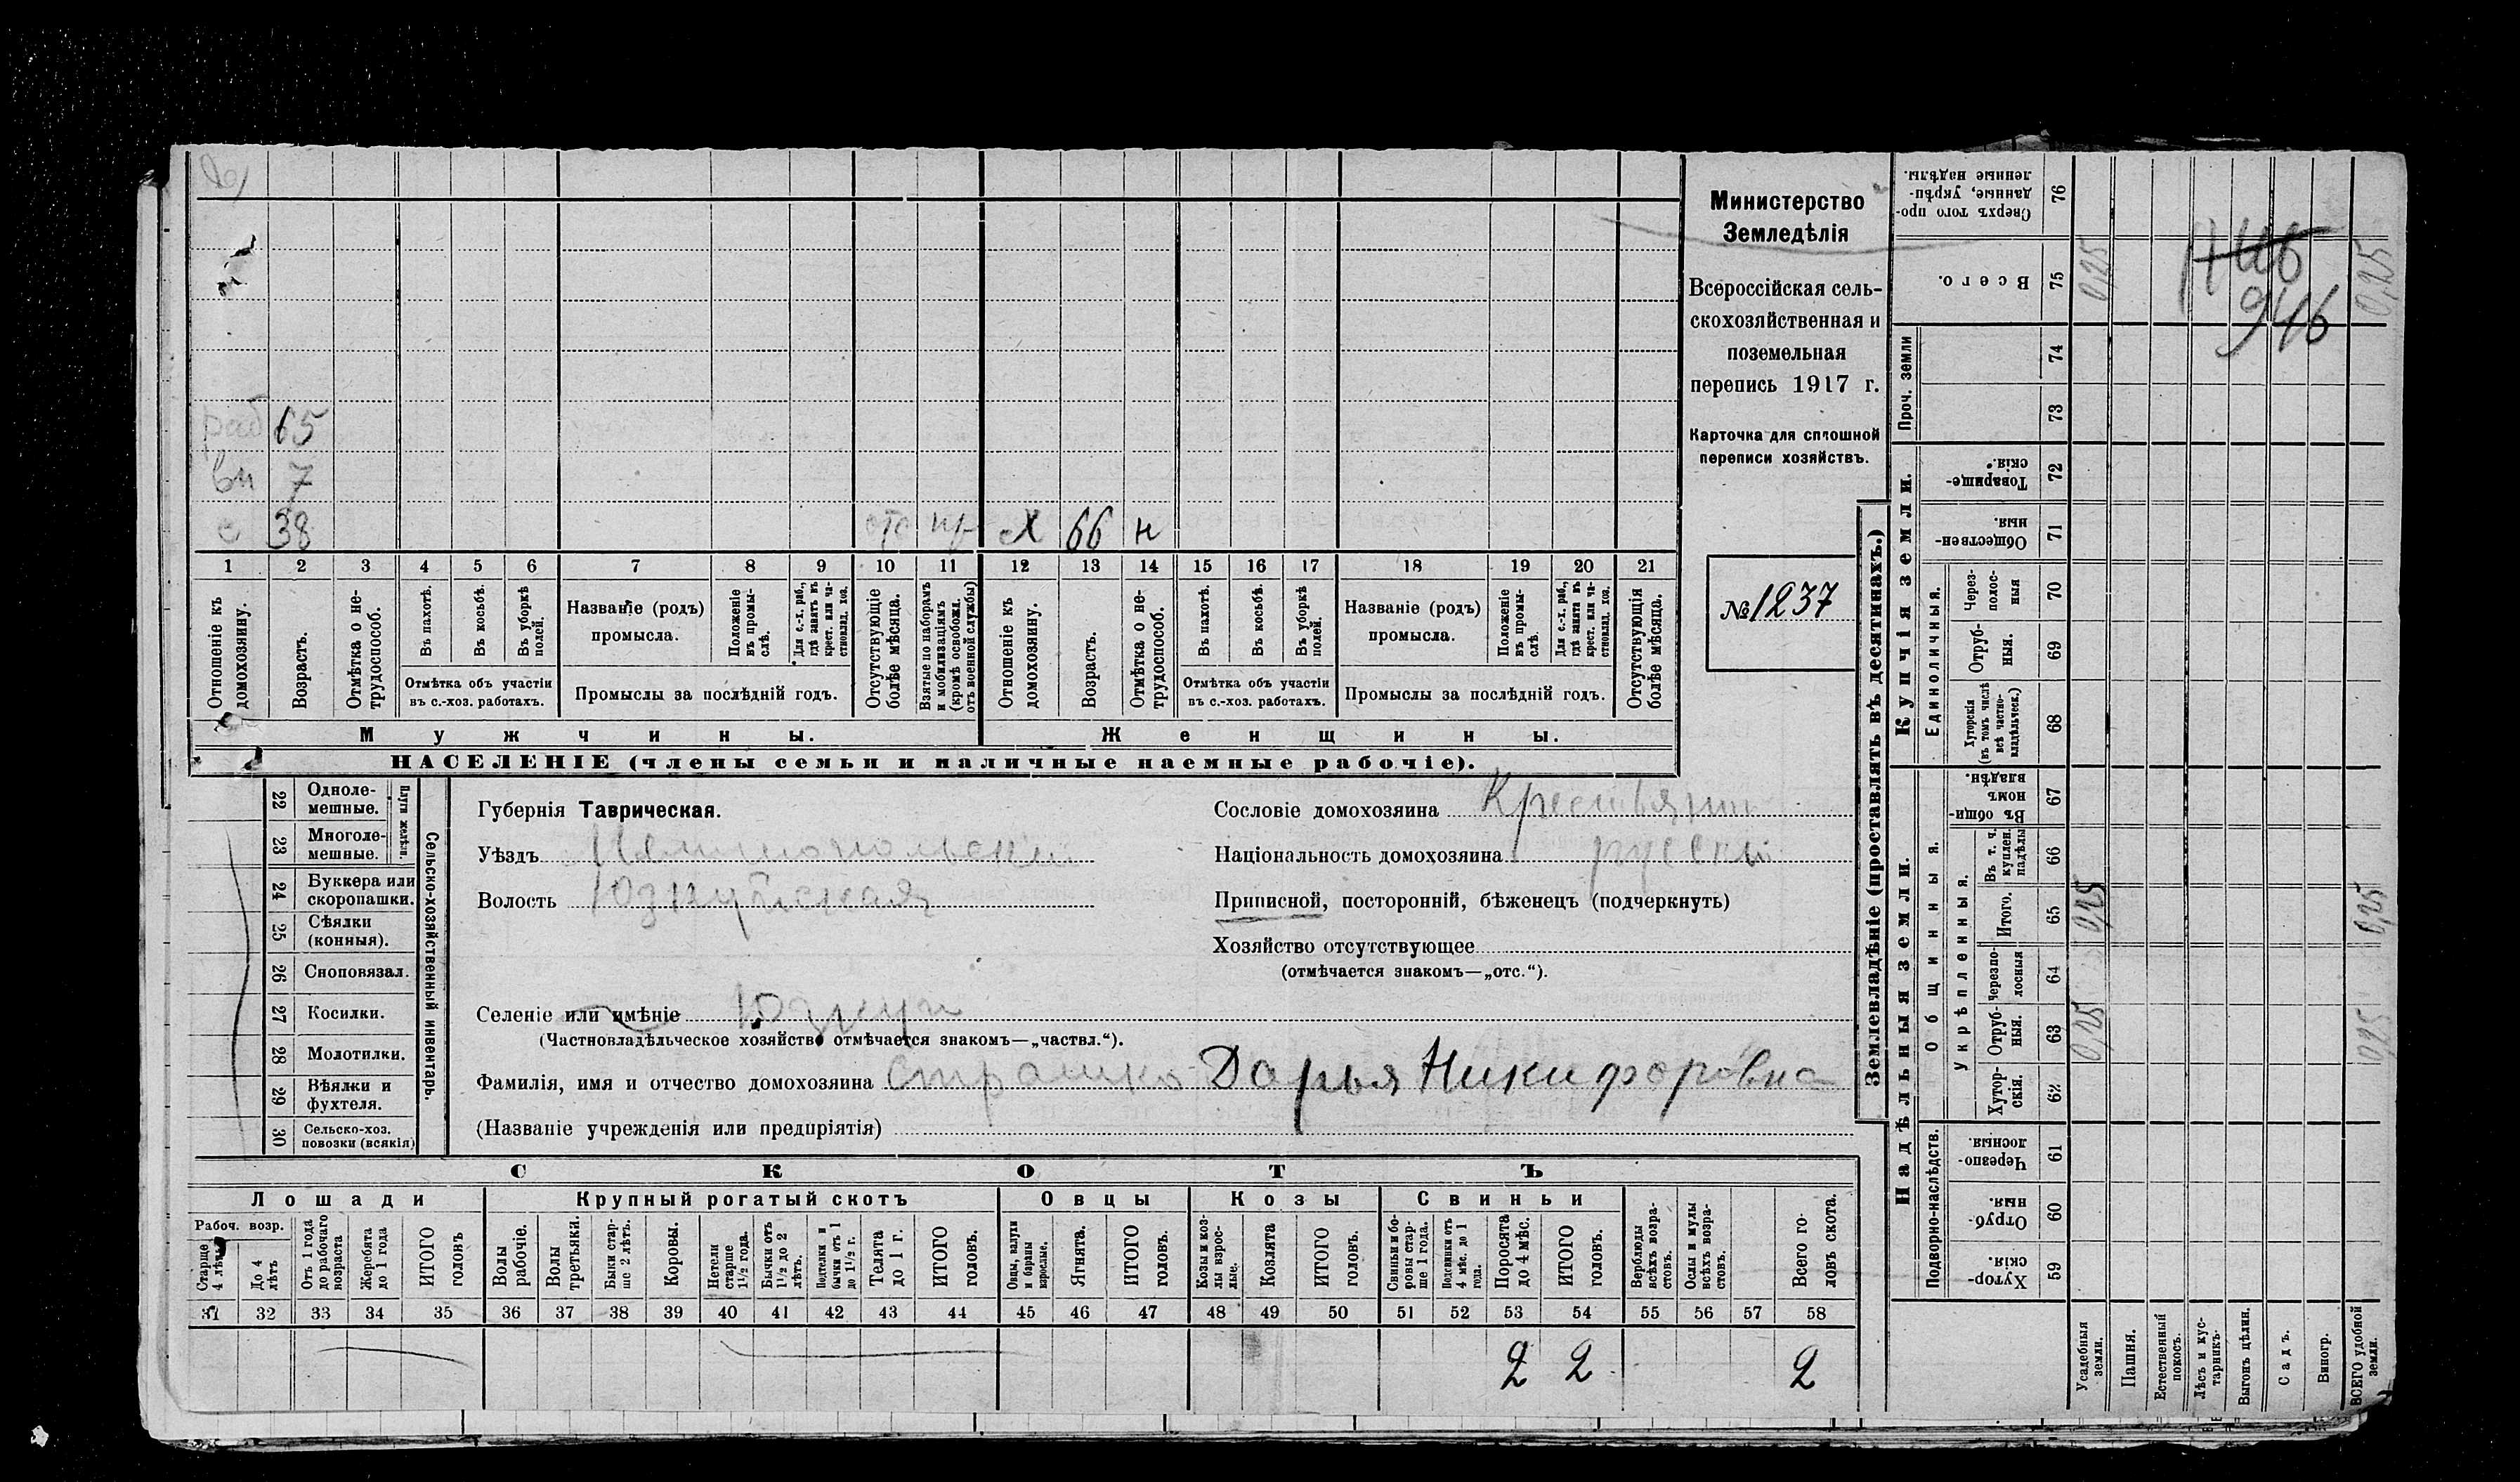 раб 65
вн 7
с 38 отс х 66 н
1 2 3 4 5 6 7 8 9 10 11 12 13 14 15 16 17 18 19 20 21
Отношеніе къ домохозяину.
Возрастъ.
Отмѣтка о нетрудоспособ.
Въ пахотѣ.
Въ косьбѣ.
Въ уборкѣ полей.
Отмѣтка объ участіи
въ с.-хоз. работахъ.
Названіе (родъ)
промысла.
Положеніе въ промыслѣ.
Для с.-х. раб., гдѣ занятъ въ крест. или частновлад. хоз.
Промыслы за послѣдній годъ.
Отсутствующіе болѣе мѣсяца.
Взятые по наборамъ и мобилизаціямъ (кромѣ освобожд. отъ военной службы)
Отношеніе къ домохозяину.
Возрастъ.
Отмѣтка о нетрудоспособ.
Въ пахотѣ.
Въ косьбѣ.
Въ уборкѣ полей.
Отмѣтка объ участіи
въ с.-хоз. работахъ.
Названіе (родъ)
промысла.
Положеніе въ промыслѣ.
Для с.-х. раб., гдѣ занята въ крест. или частновлад. хоз.
Промыслы за послѣдній годъ.
Отсутствующія болѣе мѣсяца.
Мужчины. Женщины.
НАСЕЛЕНІЕ (члены семьи и наличные наемные рабочіе).
Министерство
Земледѣлія
Всероссійская сель-
скохозяйственная и
поземельная
перепись 1917 г.
Карточка для сплошной
переписи хозяйствъ.
№ 1237
22 Однолемешные.
23 Многолемешные.
Плуги желѣзн.
24 Буккера или скоропашки.
25 Сѣялки (конныя).
26 Сноповязал.
27 Косилки.
28 Молотилки.
29 Вѣялки и фухтеля.
30 Сельско-хоз. повозки (всякія)
Сельско-хозяйственный инвентарь.
Губернія Таврическая.
Уѣздъ
Волость
Селеніе или имѣніе
(Частновладѣльческое хозяйство отмѣчается знакомъ—„частвл.“).
Фамилія, имя и отчество домохозяина Страшко Дарья Никифоровна
(Названіе учрежденія или предпріятія)
Сословіе домохозяина Крестьянин
Національность домохозяина русский
Приписной, посторонній, бѣженецъ (подчеркнуть)
Хозяйство отсутствующее
(отмѣчается знакомъ—„отс.“).
СКОТЪ
Лошади Крупный рогатый скотъ Овцы Козы Свиньи
Рабоч. возр.
Старше 4 лѣтъ
До 4 лѣтъ
Отъ 1 года до рабочаго возраста
Жеребята до 1 года
ИТОГО головъ
Волы рабочіе.
Волы третьяки.
Быки старше 2 лѣтъ.
Коровы.
Нетели старше 1½ года.
Бычки отъ 1½ до 2 лѣтъ.
Подтелки и бычки отъ 1 до 1½ г.
Телята до 1 г.
ИТОГО головъ.
Овцы, валухи и бараны взрослые.
Ягнята.
ИТОГО головъ.
Козы и козлы взрослые.
Козлята
ИТОГО головъ.
Свиньи и боровы старше 1 года.
Подсвинки отъ 4 мѣс. до 1 года.
Поросята до 4 мѣс.
ИТОГО головъ.
Верблюды всѣхъ возрастовъ.
Ослы и мулы всѣхъ возрастовъ.
Всего головъ скота.
31 32 33 34 35 36 37 38 39 40 41 42 43 44 45 46 47 48 49 50 51 52 53 54 55 56 57 58
2 2 2
Землевладѣніе (проставлять въ десятинахъ.)
Надѣльныя земли. Купчія земли. Проч. земли
Подворно-наслѣдств.
Общинныя.
Укрѣпленныя.
Единоличныя.
Хуторскія. 59
Отрубныя. 60
Черезполосныя. 61
Хуторскія. 62
Отрубныя. 63 0,25
Черезполосныя 64
Итого. 65 0,25
Въ т. ч. куплен. надѣлы 66
Въ общинномъ владѣн. 67
Хуторскія (въ томъ числѣ всѣ частновладѣльческ.) 68
Отрубныя. 69
Черезполосныя 70
Общественныя. 71
Товарищескія. 72
73
74
Всего. 75 0,25
Сверхъ того проданные, укрѣпленные надѣлы. 76
946
0,25
0,25
0,25
Усадебныя земли.
Пашня.
Естественный покосъ.
Лѣсъ и кустарникъ.
Выгонъ цѣлин.
Садъ.
Виногр.
ВСЕГО удобной земли.